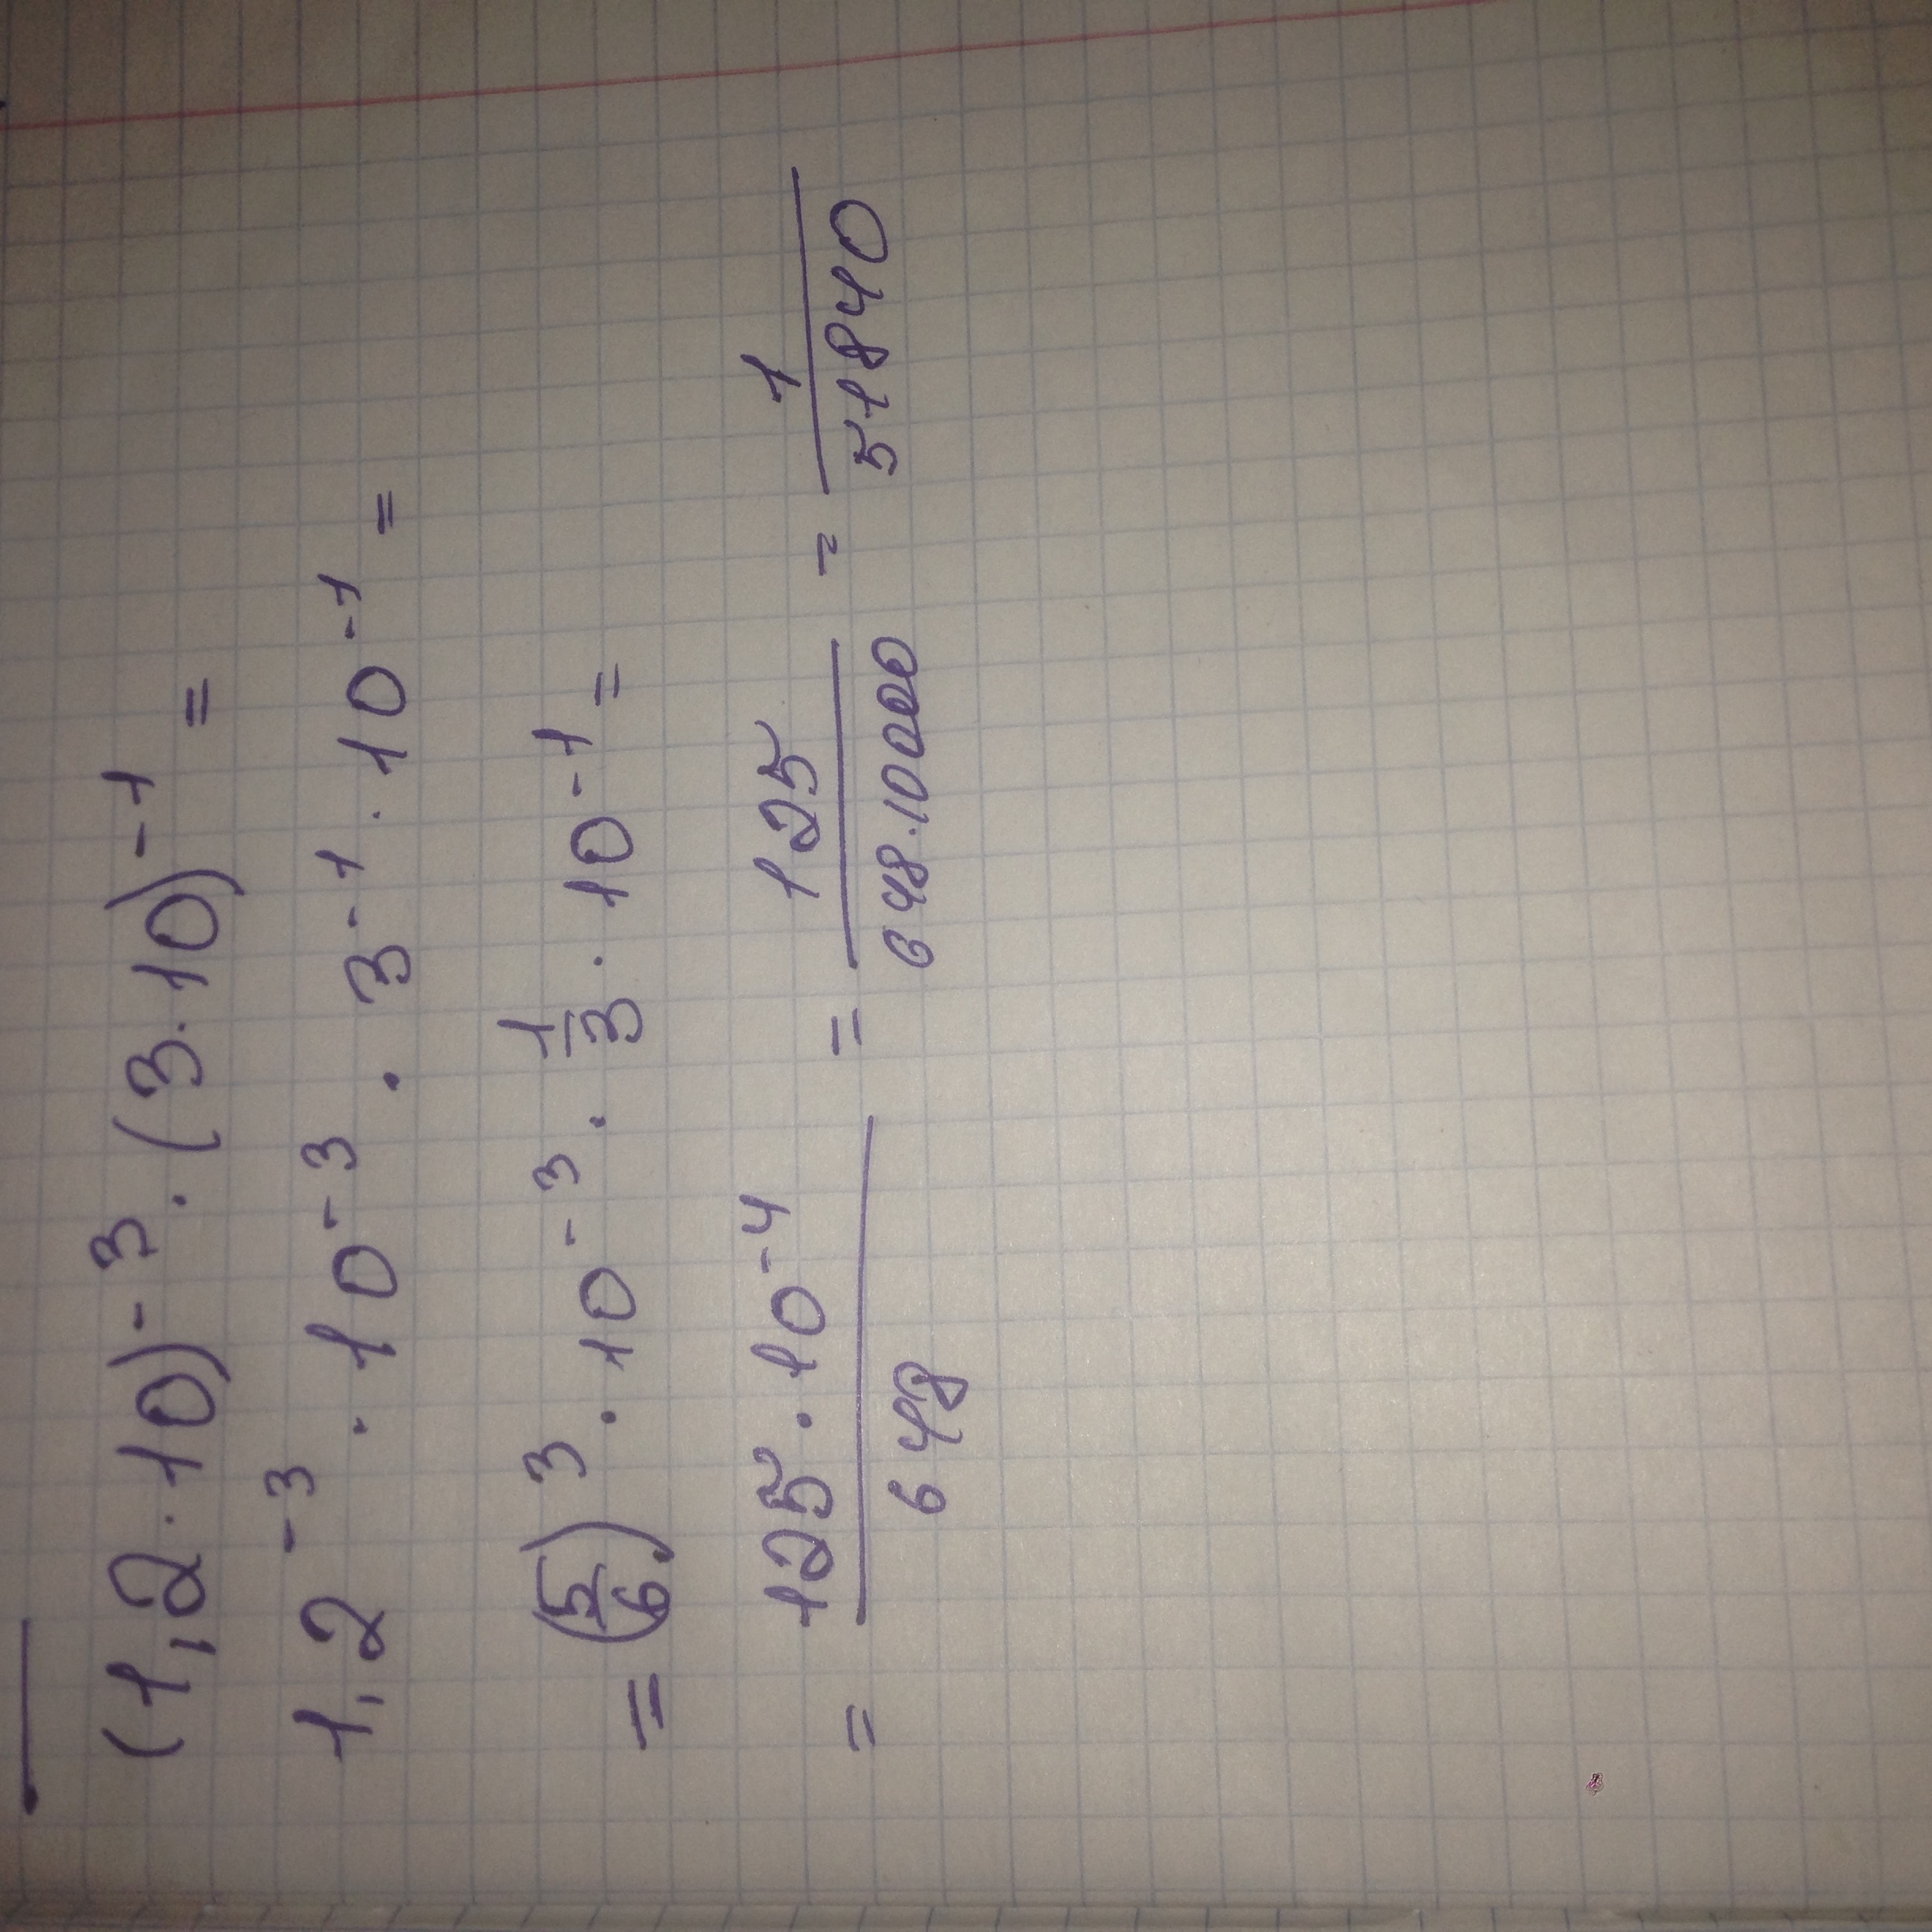 (1,2 · 10)⁻³ · (3 · 10)⁻¹ =
1,2⁻³ · 10⁻³ · 3⁻¹ · 10⁻¹ =
= (5/6)³ · 10⁻³ · 1/3 · 10⁻¹ =
= 125 · 10⁻⁴/648 = 125/648·10000 = 1/51840